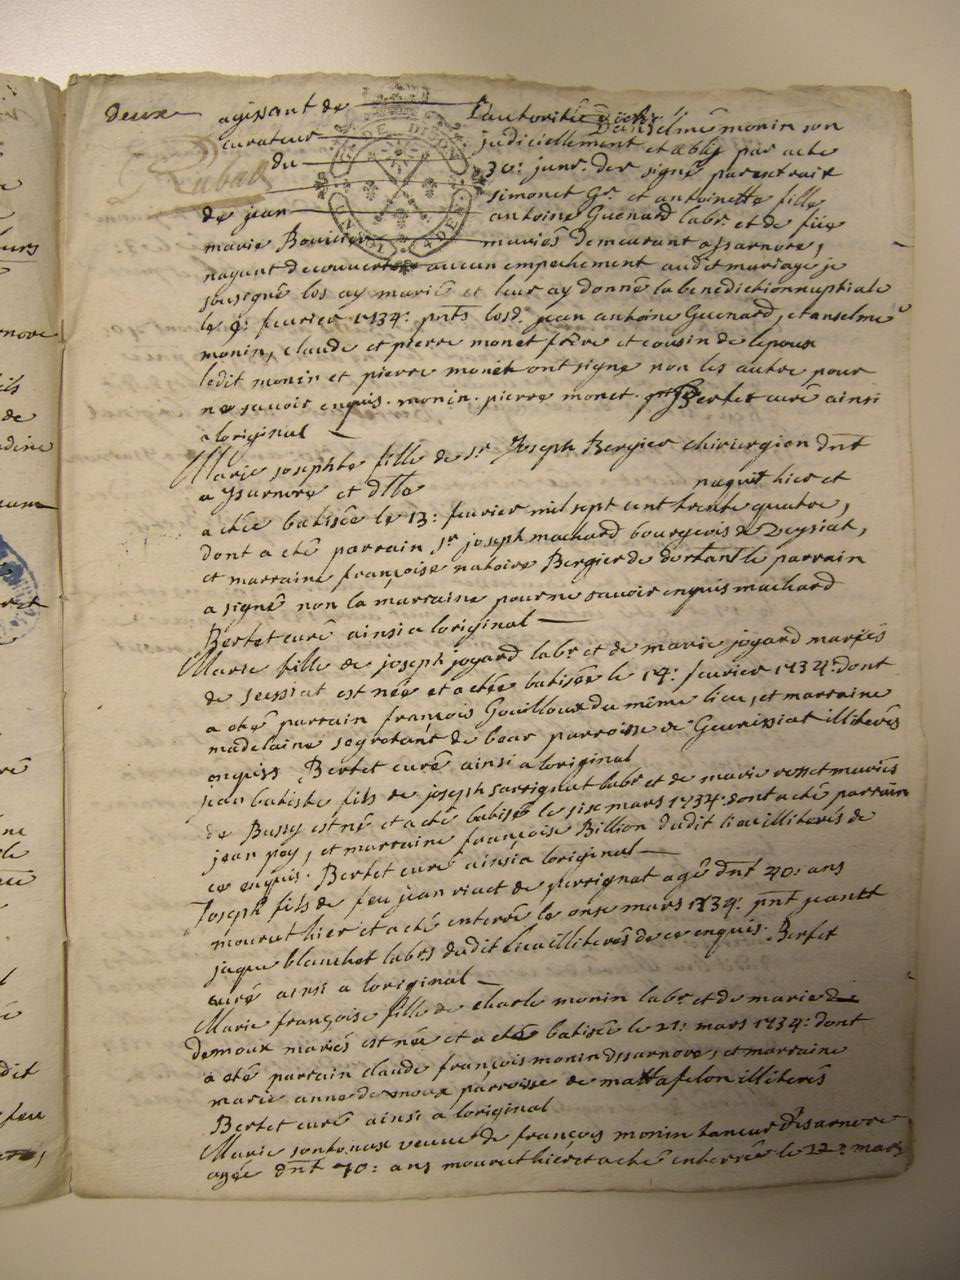 deux
agissant de l'autorité d'anselme monin son
curateur judiciellement etably par acte
du 30e: janvr. der signé par extrait
simonet Gr. et antoinette fille
de jean antoine Guenard labr. et de feüe
marie Bouilier mariés demeurant a Isarnore,
nayant decouvert aucun empechement audit mariage je
sousigné les ay marié et leur ay donné la benediction nuptiale
le 9: fevrier 1734: pnts lesd. jean antoine Guenard, et anselme
monin, claude et pierre monet frère et cousin de lepoux
ledit monin et pierre monet ont signé non les autre pour
ne savoir enquis. monin. pierre monet. Bertet curé ainsi
a loriginal
Marie josephte fille de sr. Joseph Bergier chirurgien dnt
a Isarnore et dlle naquit hier et
a étée batisée le 13: fevrier mil sept cent trente quatre,
dont a eté parrain sr joseph machard bourgeois de Deysiat,
et marraine françoise natoire Bergier de dortant le parrain
a signé non la marraine pour ne savoir enquis machard
Bertet curé ainsi a loriginal
Marie fille de joseph joyard labr. et de marie joyard mariés
de seissiat est née et a étée batisée le 14: fevrier 1734: dont
a eté parrain françois Gouilloux du même lieu, et marraine
madelaine segrotant de bear parroisse de Geurissiat illiterés
enquis Bertet curé ainsi a loriginal
jean batiste fils de joseph sarrignat labr et de marie rosset mariés
de Bussy est né et a eté batisé le six mars 1734: dont a eté parrain
jean poy, et marraine françoise Billion dudit lieu illiterés de
ce enquis. Bertet curé ainsi a loriginal
Joseph fils de feu jean viact de perrignat agé dnt 40: ans
mourut hier et a eté enterré le onse mars 1734: pnt jean et
jaque blanchet labrs dudit lieu illiterés de ce enquis. Bertet
curé ainsi a loriginal
Marie françoise fille de charle monin labr. et de marie de
demoux mariés est née et a eté batisée le 21: mars 1734: dont
a eté parrain claude françois monin d'isarnore, et marraine
marie anne demoux parroisse de mattafelon illiterés
Bertet curé ainsi a loriginal
Marie veuve de françois monin taneur d'isarnore
agée dnt 70: ans mourut hier et a eté enterrée le 22e: mars